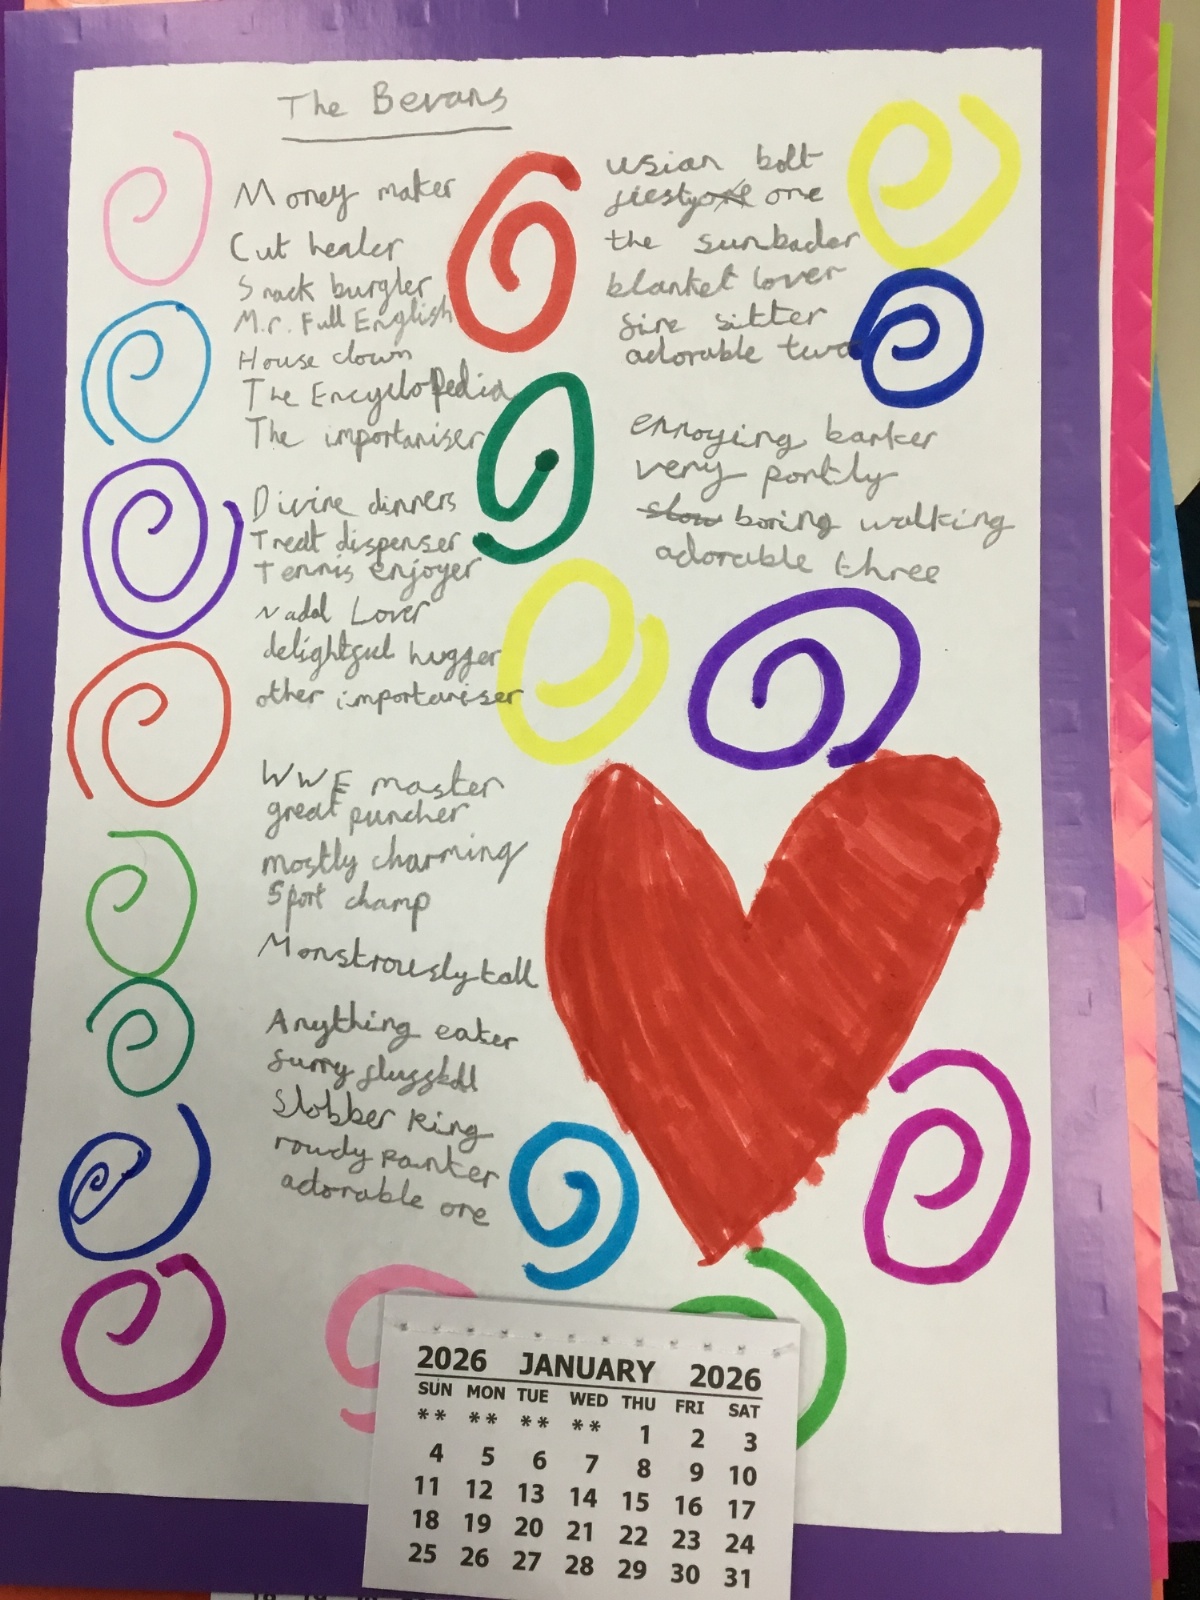 The Bevans
Money maker
Cut healer
Snack burgler
M.r. Full English
House clown
The Encyclopedia
The importaniser
Divine dinners
Treat dispenser
Tennis enjoyer
Nadal Lover
delightful hugger
other importaniser
WWE master
great puncher
mostly charming
Sport champ
Monstrously tall
Anything eater
furry fluggball
Slobber King
rowdy panter
adorable one
usian bolt
fiesty one one
the sunbader
blanket lover
fire sitter
adorable two
ennoying barker
very portly
slow boring walking
adorable three
2026 JANUARY 2026
SUN MON TUE WED THU FRI SAT
** ** ** ** 1 2 3
4 5 6 7 8 9 10
11 12 13 14 15 16 17
18 19 20 21 22 23 24
25 26 27 28 29 30 31